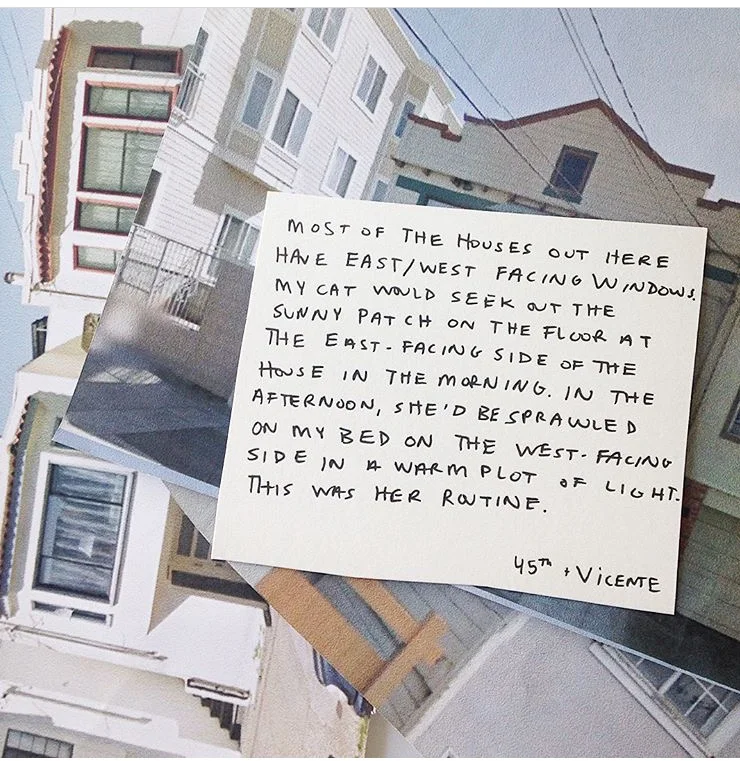 MOST OF THE HOUSES OUT HERE
HAVE EAST/WEST FACING WINDOWS.
MY CAT WOULD SEEK OUT THE
SUNNY PATCH ON THE FLOOR AT
THE EAST-FACING SIDE OF THE
HOUSE IN THE MORNING. IN THE
AFTERNOON, SHE'D BE SPRAWLED
ON MY BED ON THE WEST-FACING
SIDE IN A WARM PLOT OF LIGHT.
THIS WAS HER ROUTINE.
45TH + VICENTE